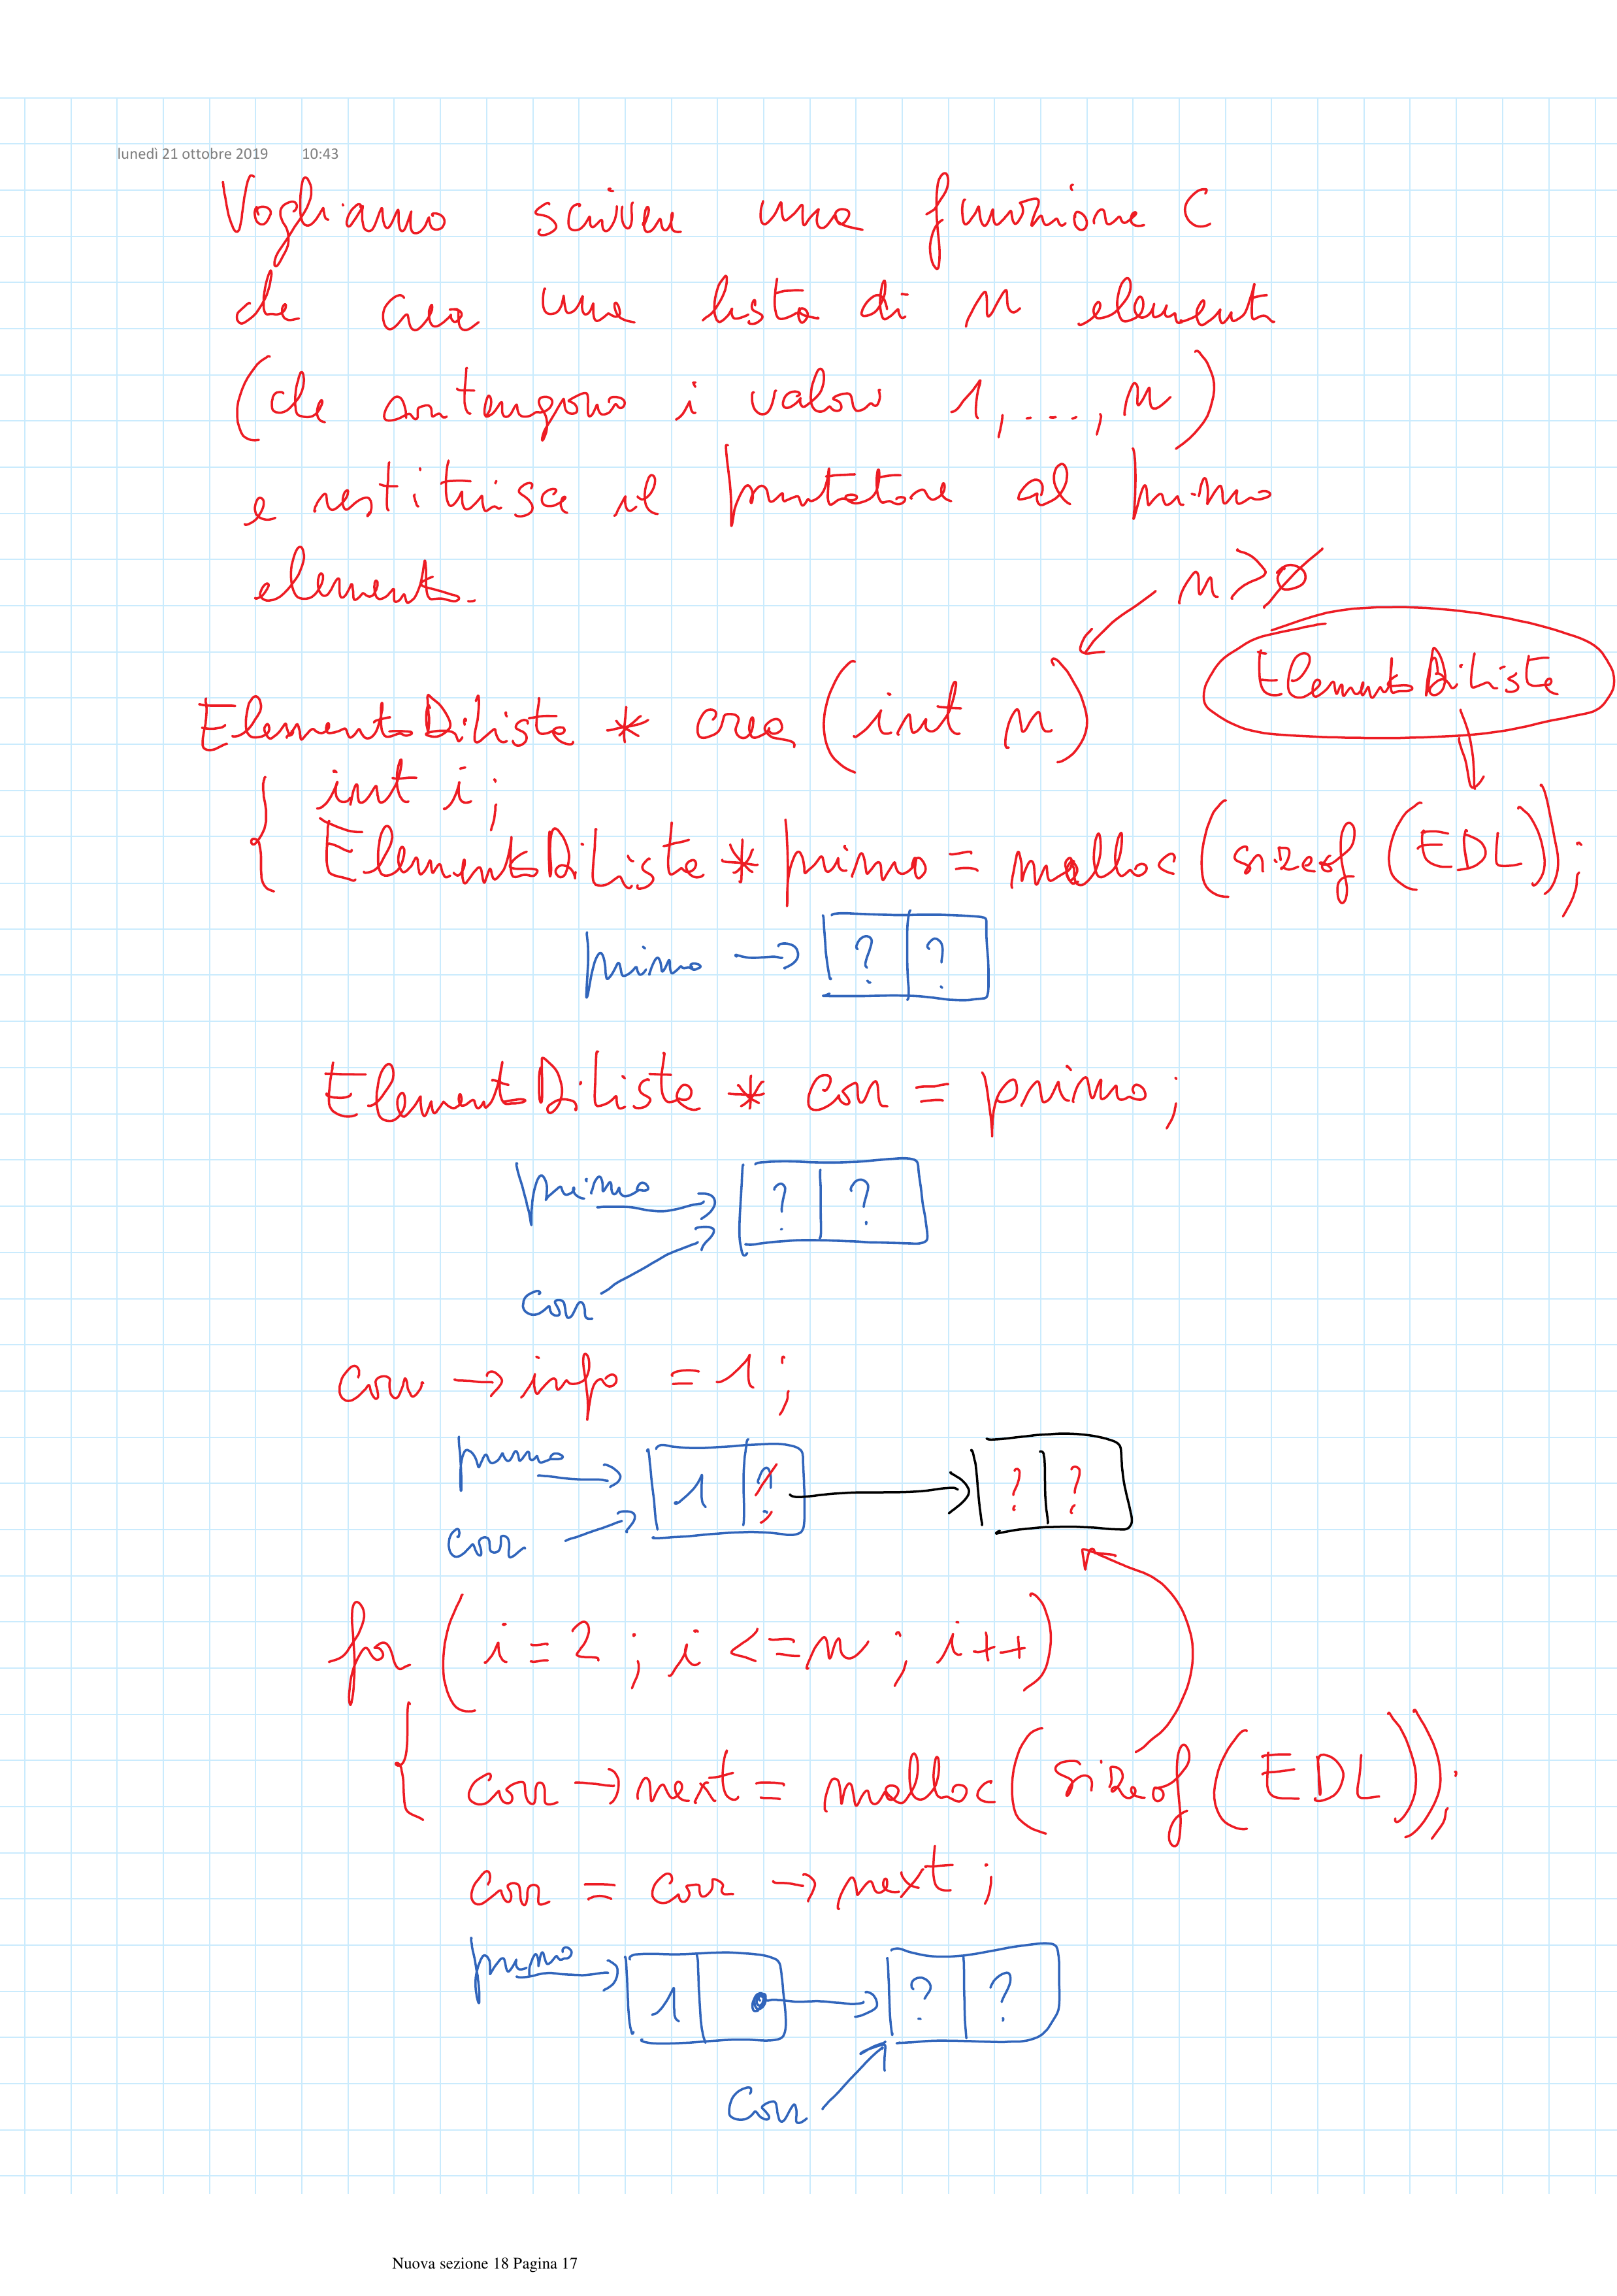 lunedì 21 ottobre 2019 10:43
Vogliamo scrivere una funzione C
che crea una lista di n elementi
(che contengono i valori 1,...,n)
e restituisce il puntatore al primo
elemento.
n>0
ElementoDiLista
ElementoDiLista * crea (int n)
{ int i;
ElementoDiLista * primo = malloc (sizeof (EDL));
primo → ? ?
ElementoDiLista * corr = primo;
primo → ? ?
corr
corr → info = 1;
primo → 1 ? → ? ?
corr
for (i=2; i<=n; i++)
{ corr → next = malloc (sizeof (EDL));
corr = corr → next;
primo → 1 → ? ?
corr
Nuova sezione 18 Pagina 17